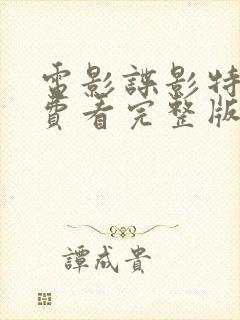 電影諜影特
費看完整版
譚成貴